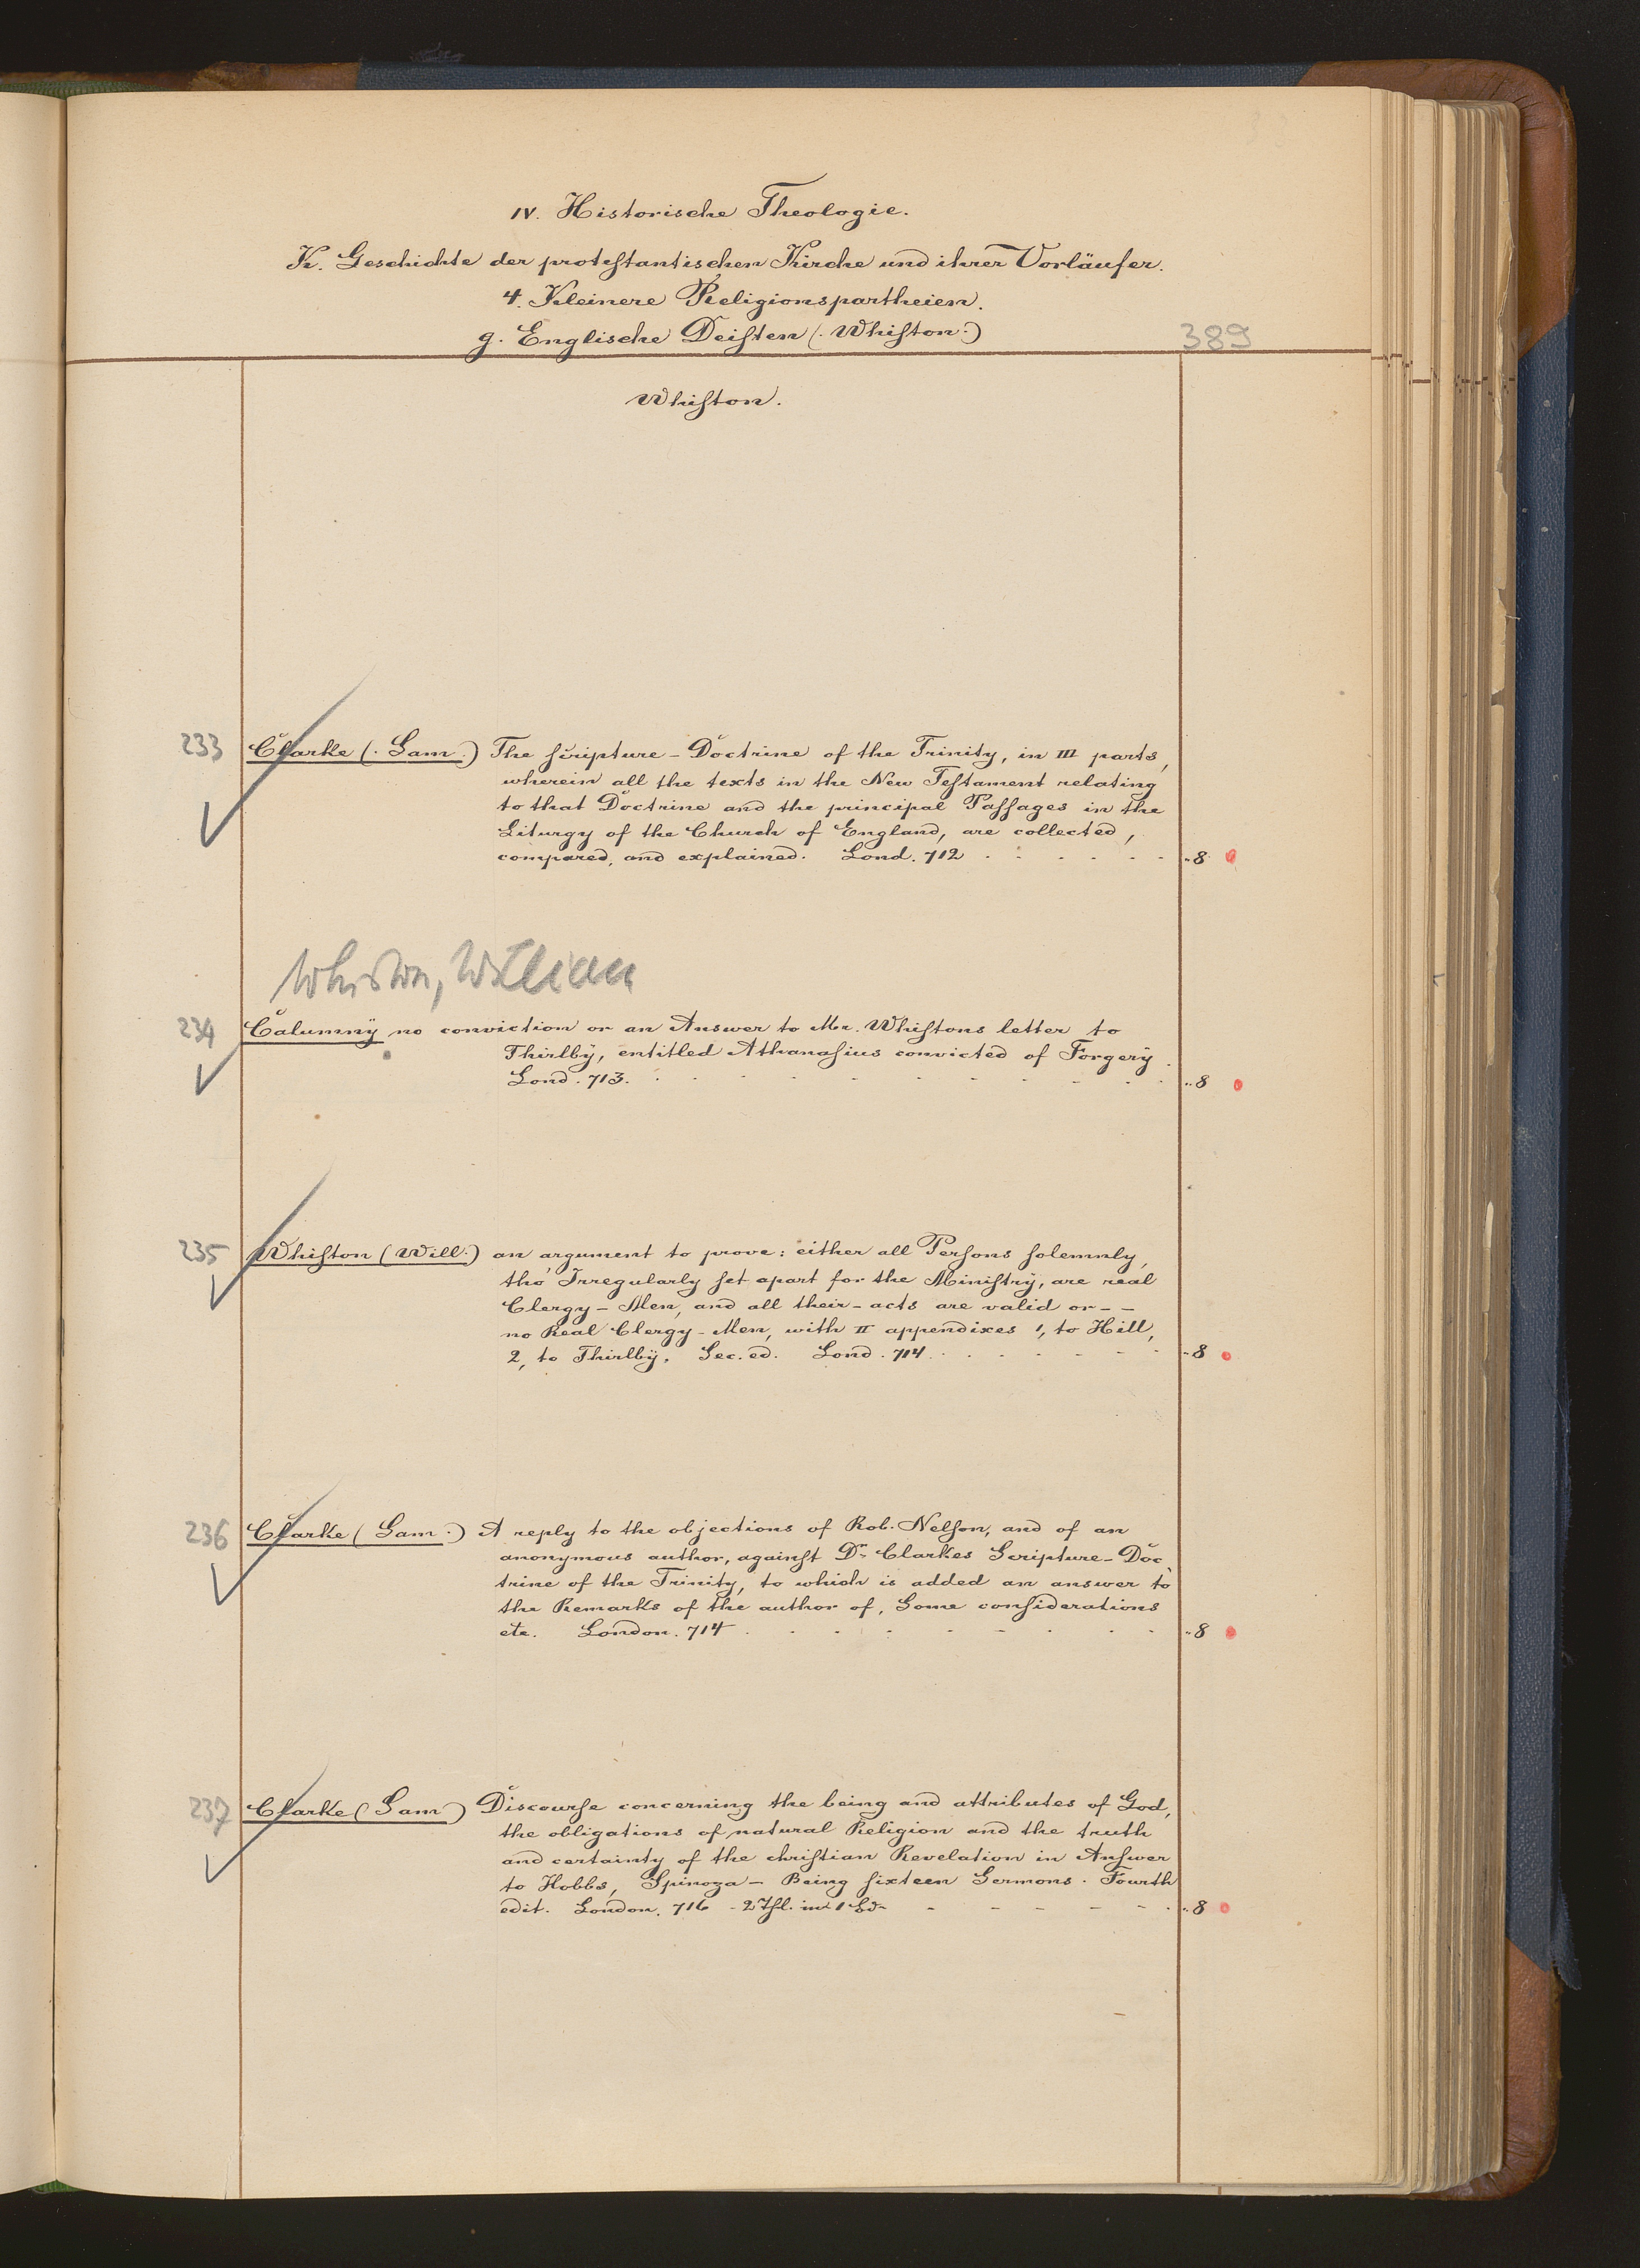 IV. Historische Theologie.
K. Geschichte der protestantischen Kirche und ihrer Vorläufer.
4. Kleinere Religionspartheien.
g. Englische Deisten (. Whiston.)
389
Whiston.
233 Clarke (. Sam.) The scripture-Doctrine of the Trinity, in III parts,
wherein all the texts in the New Testament relating
to that Doctrine and the principal Passages in the
Liturgy of the Church of England, are collected,
compared, and explained. Lond. 712 8
Whiston, William
234 Calumnÿ no conviction or an Answer to Mr. Whistons letter to
Thirlbÿ, entitled Athanasius convicted of Forgerÿ.
Lond. 713. 8
235 Whiston (Will.) an argument to prove: either all Persons solemnly,
tho' Irregularly set apart for the Ministrÿ, are real
Clergy-Men, and all their-acts are valid or--
no Real Clergy-Men, with II appendixes 1, to Hill,
2, to Thirlbÿ. Sec. ed. Lond. 714. 8
236 Clarke (Sam.) A reply to the objections of Rob. Nelson, and of an
anonymous author, against Dr. Clarkes Scripture-Doc
trine of the Trinity, to which is added an answer to
the Remarks of the author of, Some considerations
etc. London. 714 8
237 Clarke (Sam) Discourse concerning the being and attributes of God,
the obligations of natural Religion and the truth
and certainty of the christian Revelation in Answer
to Hobbs, Spinoza - Being sixteen Sermons. Fourth
edit. London. 716 - 2 Thl. in 1 Bd- 8